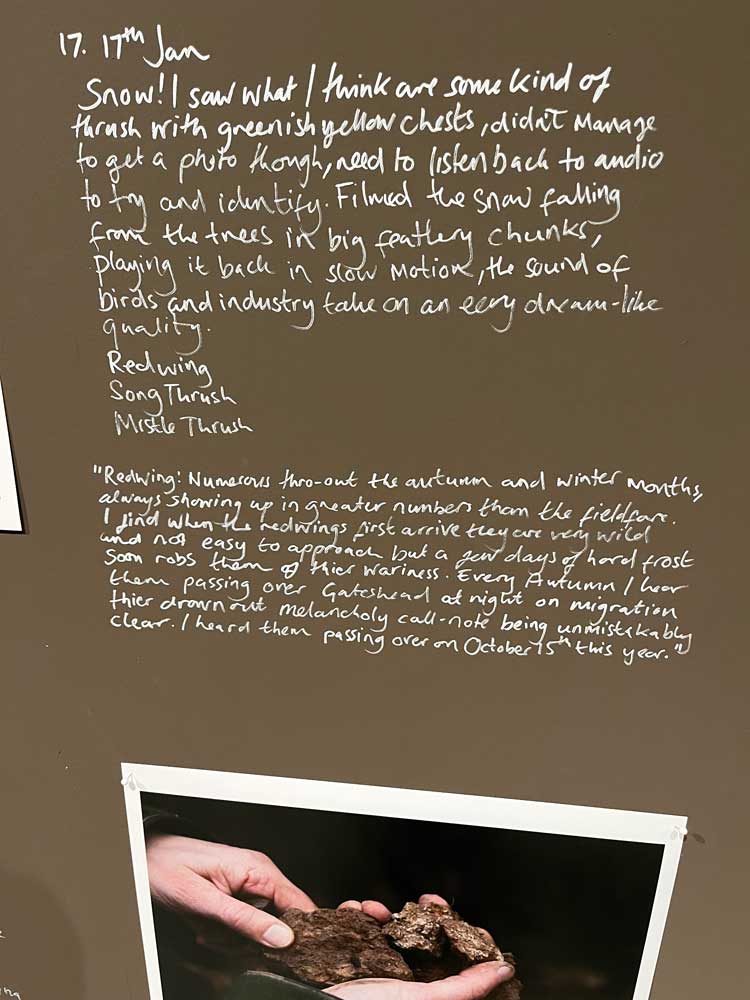 17. 17th Jan
Snow! I saw what I think are some kind of
thrush with greenish yellow chests, didn't manage
to get a photo though, need to listen back to audio
to try and identify. Filmed the snow falling
from the trees in big feathery chunks,
playing it back in slow motion, the sound of
birds and industry take on an eery dream-like
quality.
Redwing
Song Thrush
Mistle Thrush
"Redwing: Numerous thro-out the autumn and winter months,
always showing up in greater numbers than the fieldfare.
I find when the redwings first arrive they are very wild
and not easy to approach but a few days of hard frost
soon robs them of thier wariness. Every Autumn I hear
them passing over Gateshead at night on migration
thier drawn out melancholy call-note being unmistakably
clear. I heard them passing over on October 15th this year."